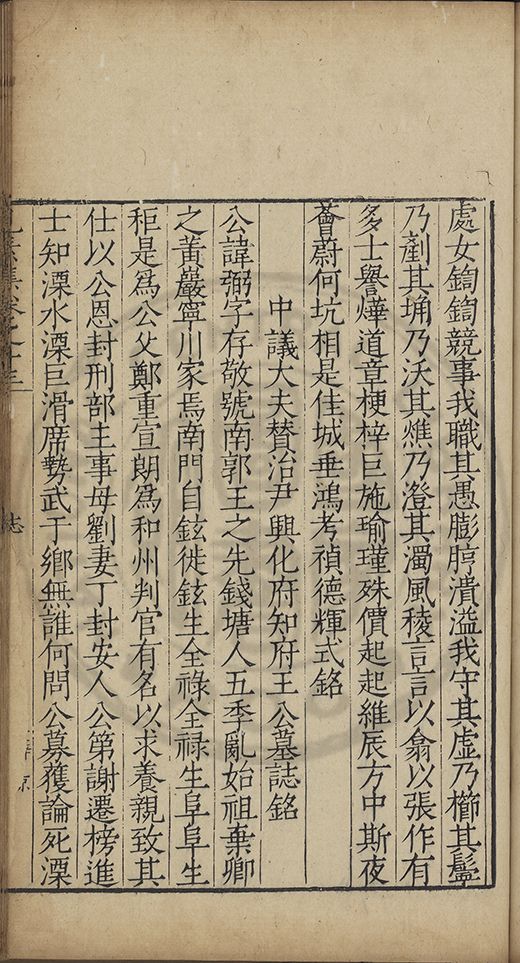 處女鏑鏑競事我職其愚膨脝潰溢我守其虛乃櫛其鬈
乃剷其埇乃沃其燋乃澄其濁風稜言言以翕以張作有
多士譽燁道章梗梓巨施瑜瑾殊價起起維辰方中斯夜
薈蔚何坑相是佳城垂鴻考禎德輝式銘
中議大夫贊治尹興化府知府王公墓誌銘
公諱弼字存敬號南郭王之先錢塘人五季亂始祖棄卿
之黃巖寧川家焉南門自鉉徙鉉生全祿全祿生阜阜生
秬是為公父鄭重宣朗為和州判官有名以求養親致其
仕以公恩封刑部主事母劉妻丁封安人公第謝遷榜進
士知溧水溧巨滑席勢武于鄉無誰何問公募獲論死溧
卷之十三
志